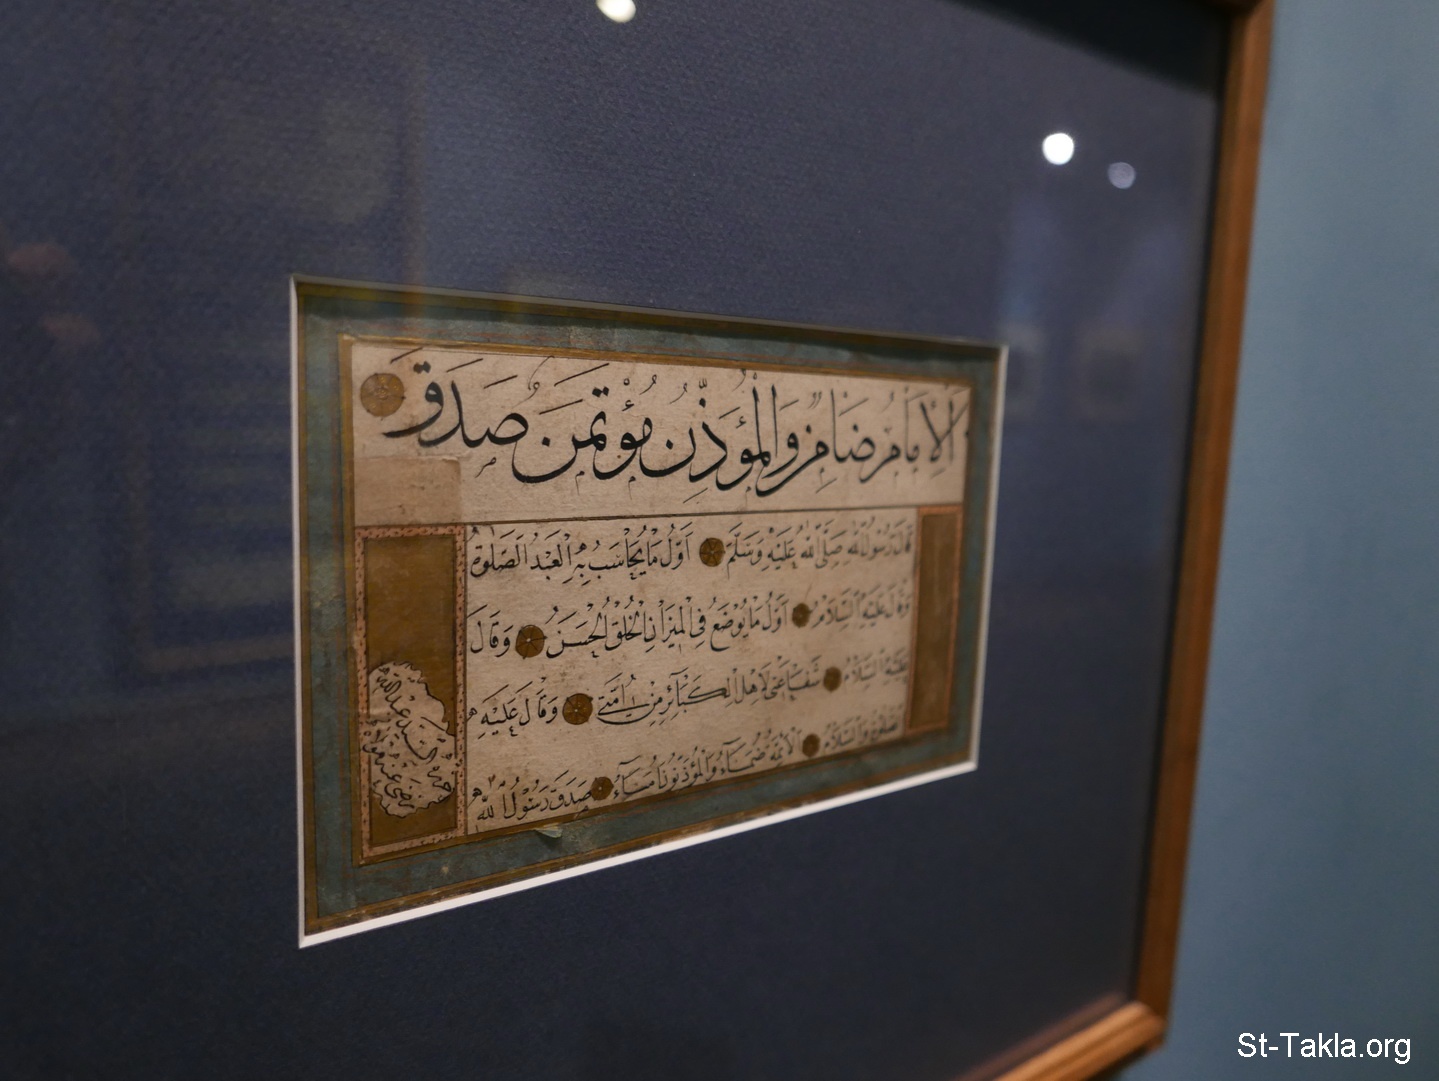 الإمام ضامن والمؤذن مؤتمن صدق
قال رسول الله صلى الله عليه وسلم أول ما يحاسب به العبد الصلوة
وقال عليه السلام أول ما يوضع في الميزان الخلق الحسن وقال
عليه السلام شفاعتي لأهل الكبائر من أمتي وقال عليه
الصلوة والسلام الأئمة ضمناء والمؤذنون أمناء صدق رسول الله
السيد عبد الله
عنه
St-Takla.org